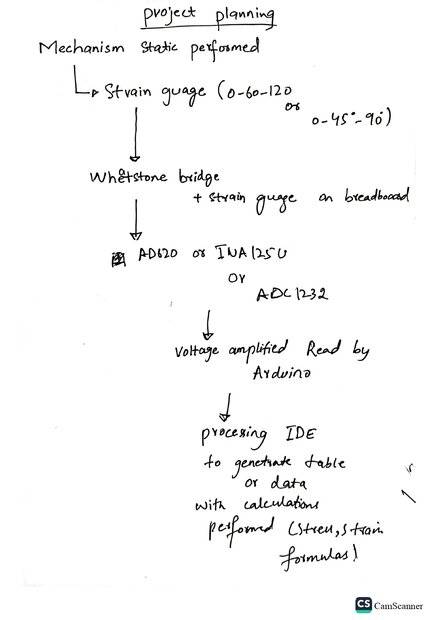 project planning
Mechanism static performed
Strain guage (0-60-120
or
0-45°-90°)
Whetstone bridge
+ strain guage on breadboard
AD620 or INA125U
or
ADC1232
Voltage amplified Read by
Arduino
procesing IDE
to genetrate table
or data
with calculations
performed (stress, strain
formulas)
CS CamScanner